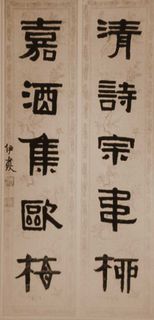 清詩宗韋柳
嘉酒集歐梅
伊